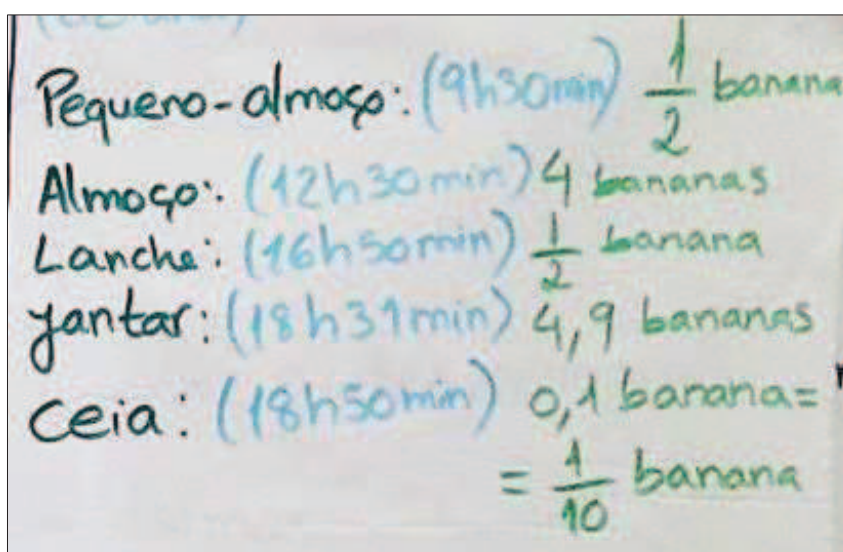 Pequeno-almoço: (9h30min) 1/2 banana
Almoço: (12h30min) 4 bananas
Lanche: (16h50min) 1/2 banana
Jantar: (18h31min) 4,9 bananas
Ceia: (18h50min) 0,1 banana=
= 1/10 banana